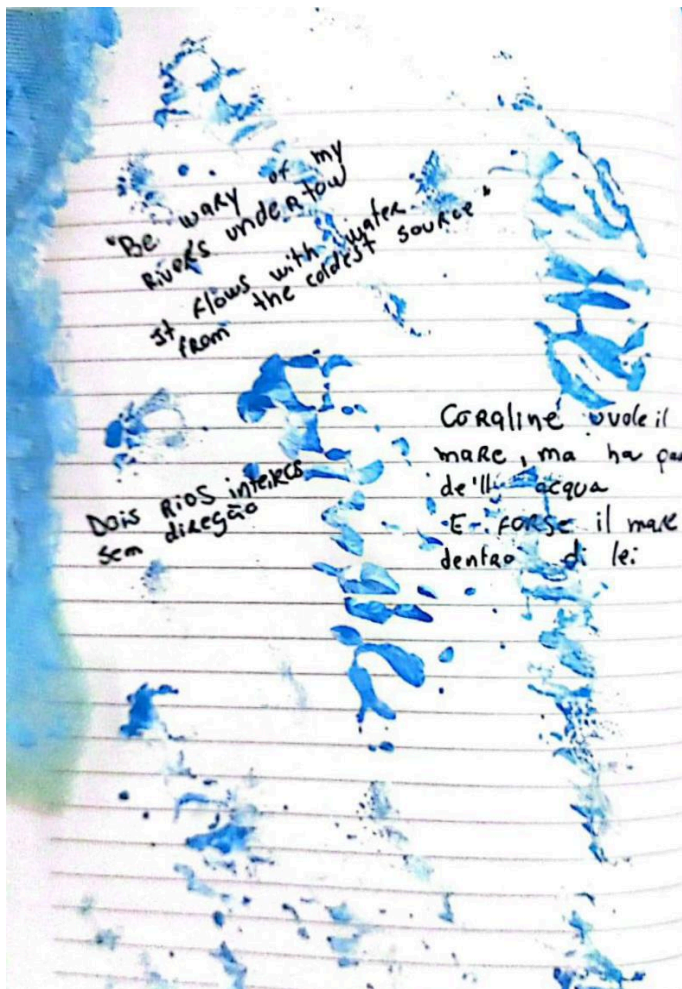 "Be wary of my
River's undertow
It flows with water
from the coldest source"
Dois Rios inteiros
sem direção
Coraline vuole il
mare, ma ha pau
de'll acqua
E forse il mare
dentro di lei